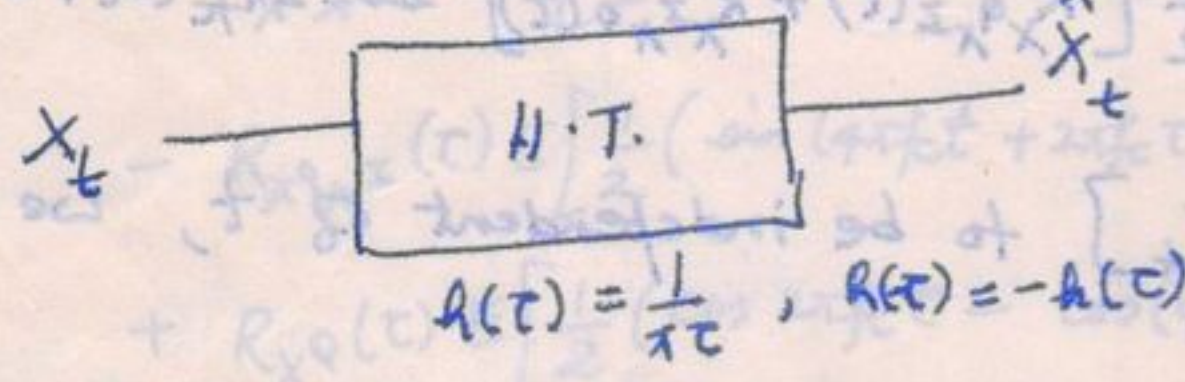 X_t H.T. X̂_t
h(τ) = 1/(πτ) , h(-τ) = -h(τ)